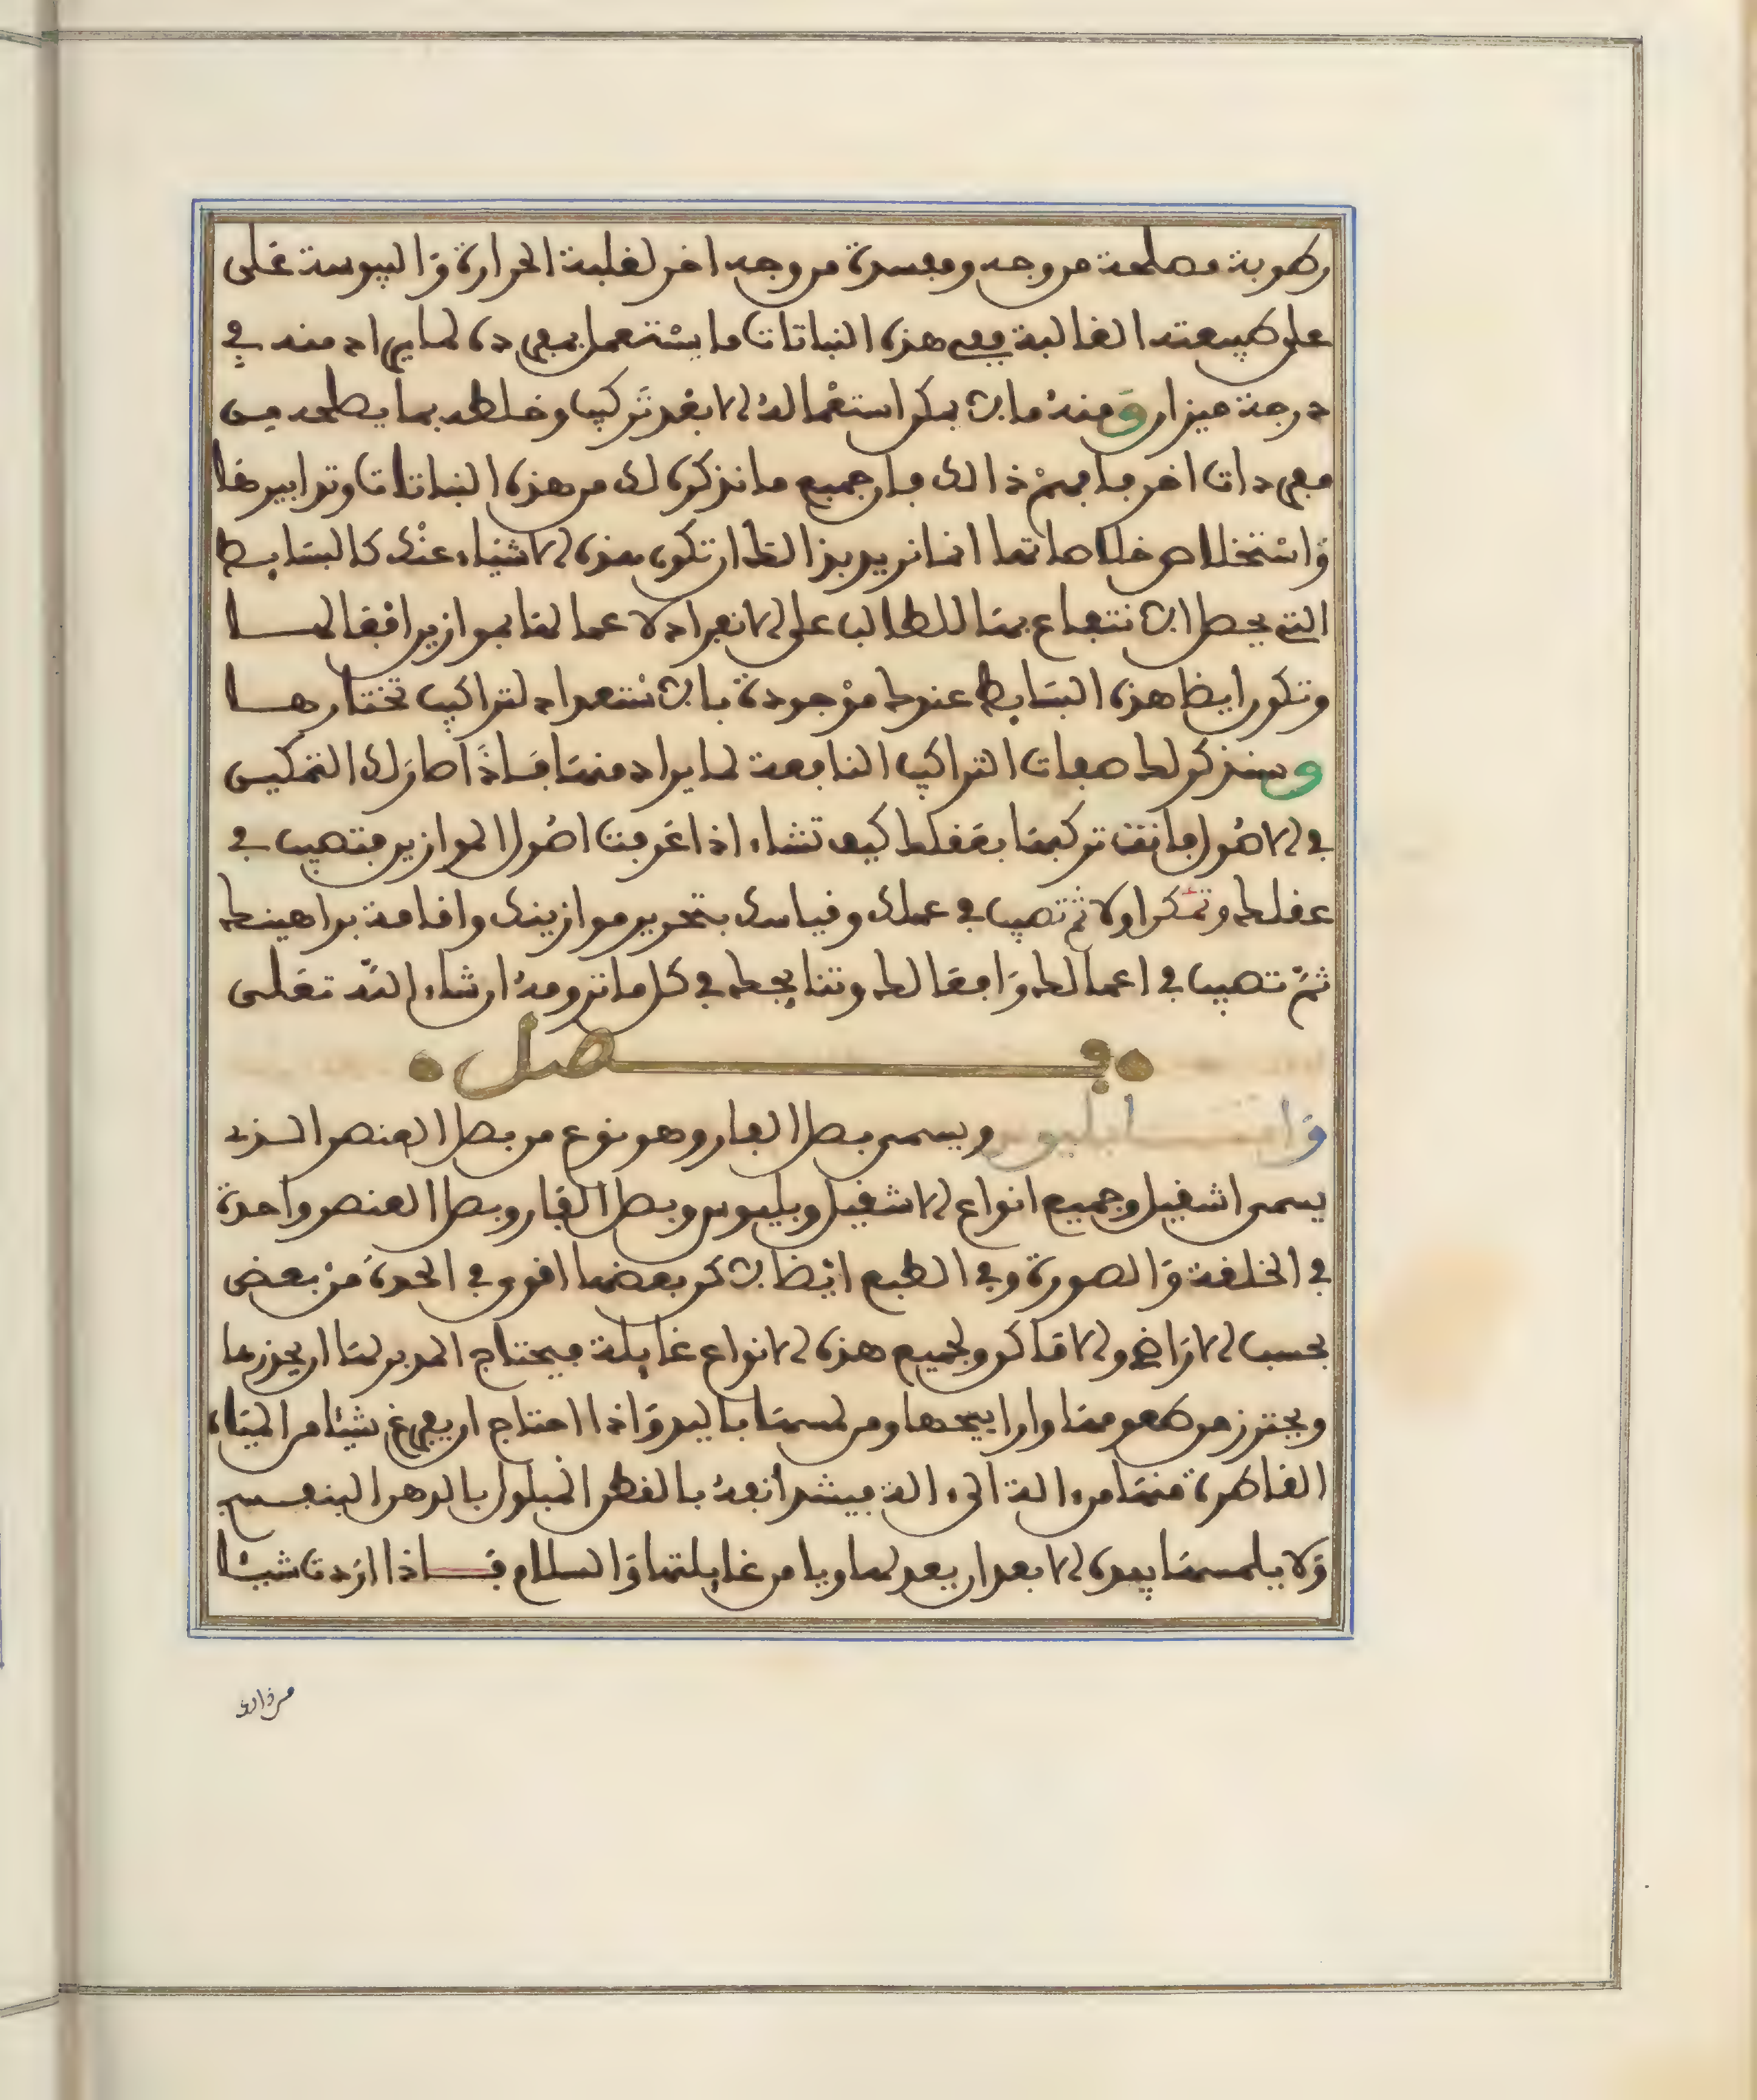 رطوبة مصلحة من وجه ومفسدة من وجه اخر لغلبة الحرارة واليبوسة على
على طبيعته الغالبة ففى هذه النباتات ما يستعمل بمفرده لما يراد منه في
درجة ميزان ومنه ما لا يمكن استعماله الا بعد تركيب وخلطه بما يصلحه من
مفردات اخر فافهم ذالك فان جميع ما نذكره لك من هذه النباتات وتدابيرها
واستخلاص خلاصاتها انما نريد بذالك ان تكون هذه الاشياء عندك كالبسايط
التي يحصل الانتفاع بها للطالب على الانفراد لاعمالنا بموازين افعالها
وتكون ايضا هذه البسايط عندك موجودة بالاستعداد لتراكيب تختارها
وسنذكر لك صفات التراكيب النافعة لما يراد منها فاذا صار لك التمكين
في الاصول فانت تركبها بعقلك كيف تشاء اذا عرفت اصول الموازين فتصيب في
عقلك وفكر اولا ثم تصيب في عملك وقياسك بتحرير موازينك واقامة براهينك
ثم تصيب في اعمالك وافعالك ونتايجك في كل ما ترومه ان شاء الله تعلى
فصل
واما بلبوس ويسمى بصل الفار وهو نوع من بصل العنصر الذي
يسمى اشقيل وجميع انواع الاشقيل وبلبوس وبصل الفار وبصل العنصر واحدة
في الخلقة والصورة وفي الطبع ايضا لاكن بعضها اقوى في الحدة من بعض
بحسب الاراضي والاماكن ولجميع هذه الانواع غايلة فيحتاج المدبر لها ان يحذرها
ويحترز من طعومها وارايحها ومن لمسها باليد واذا احتاج ان يفرغ شيئا من المياه
القاطرة منها من الة الى الة فيشد انفه بالقطن المبلول بالدهن البنفسج
ولا يلمسها بيده الا بعد ان يعد لها ويامن غايلتها والسلام فاذا اردت شيئا
من ذالك